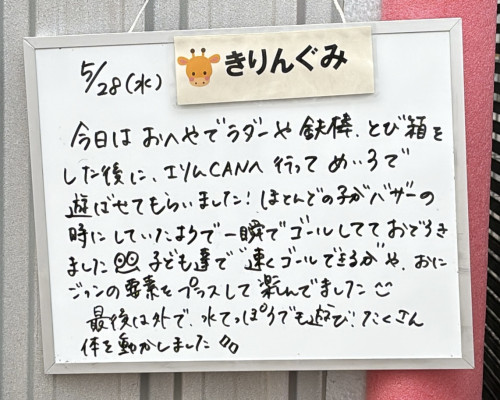 きりんぐみ
5/28(水)
今日は おへやでラダーや 鉄棒、とび箱を
した後に、エリムCANへ 行って めいろで
遊ばせてもらいました! ほとんどの子がバザーの
時にしていたようで 一瞬で ゴールしてて おどろき
ました 子ども達で 速くゴールできるかや、おに
ごっこの要素をプラスして 楽しんでました
最後は外で、水でっぽうでも遊び、たくさん
体を動かしました